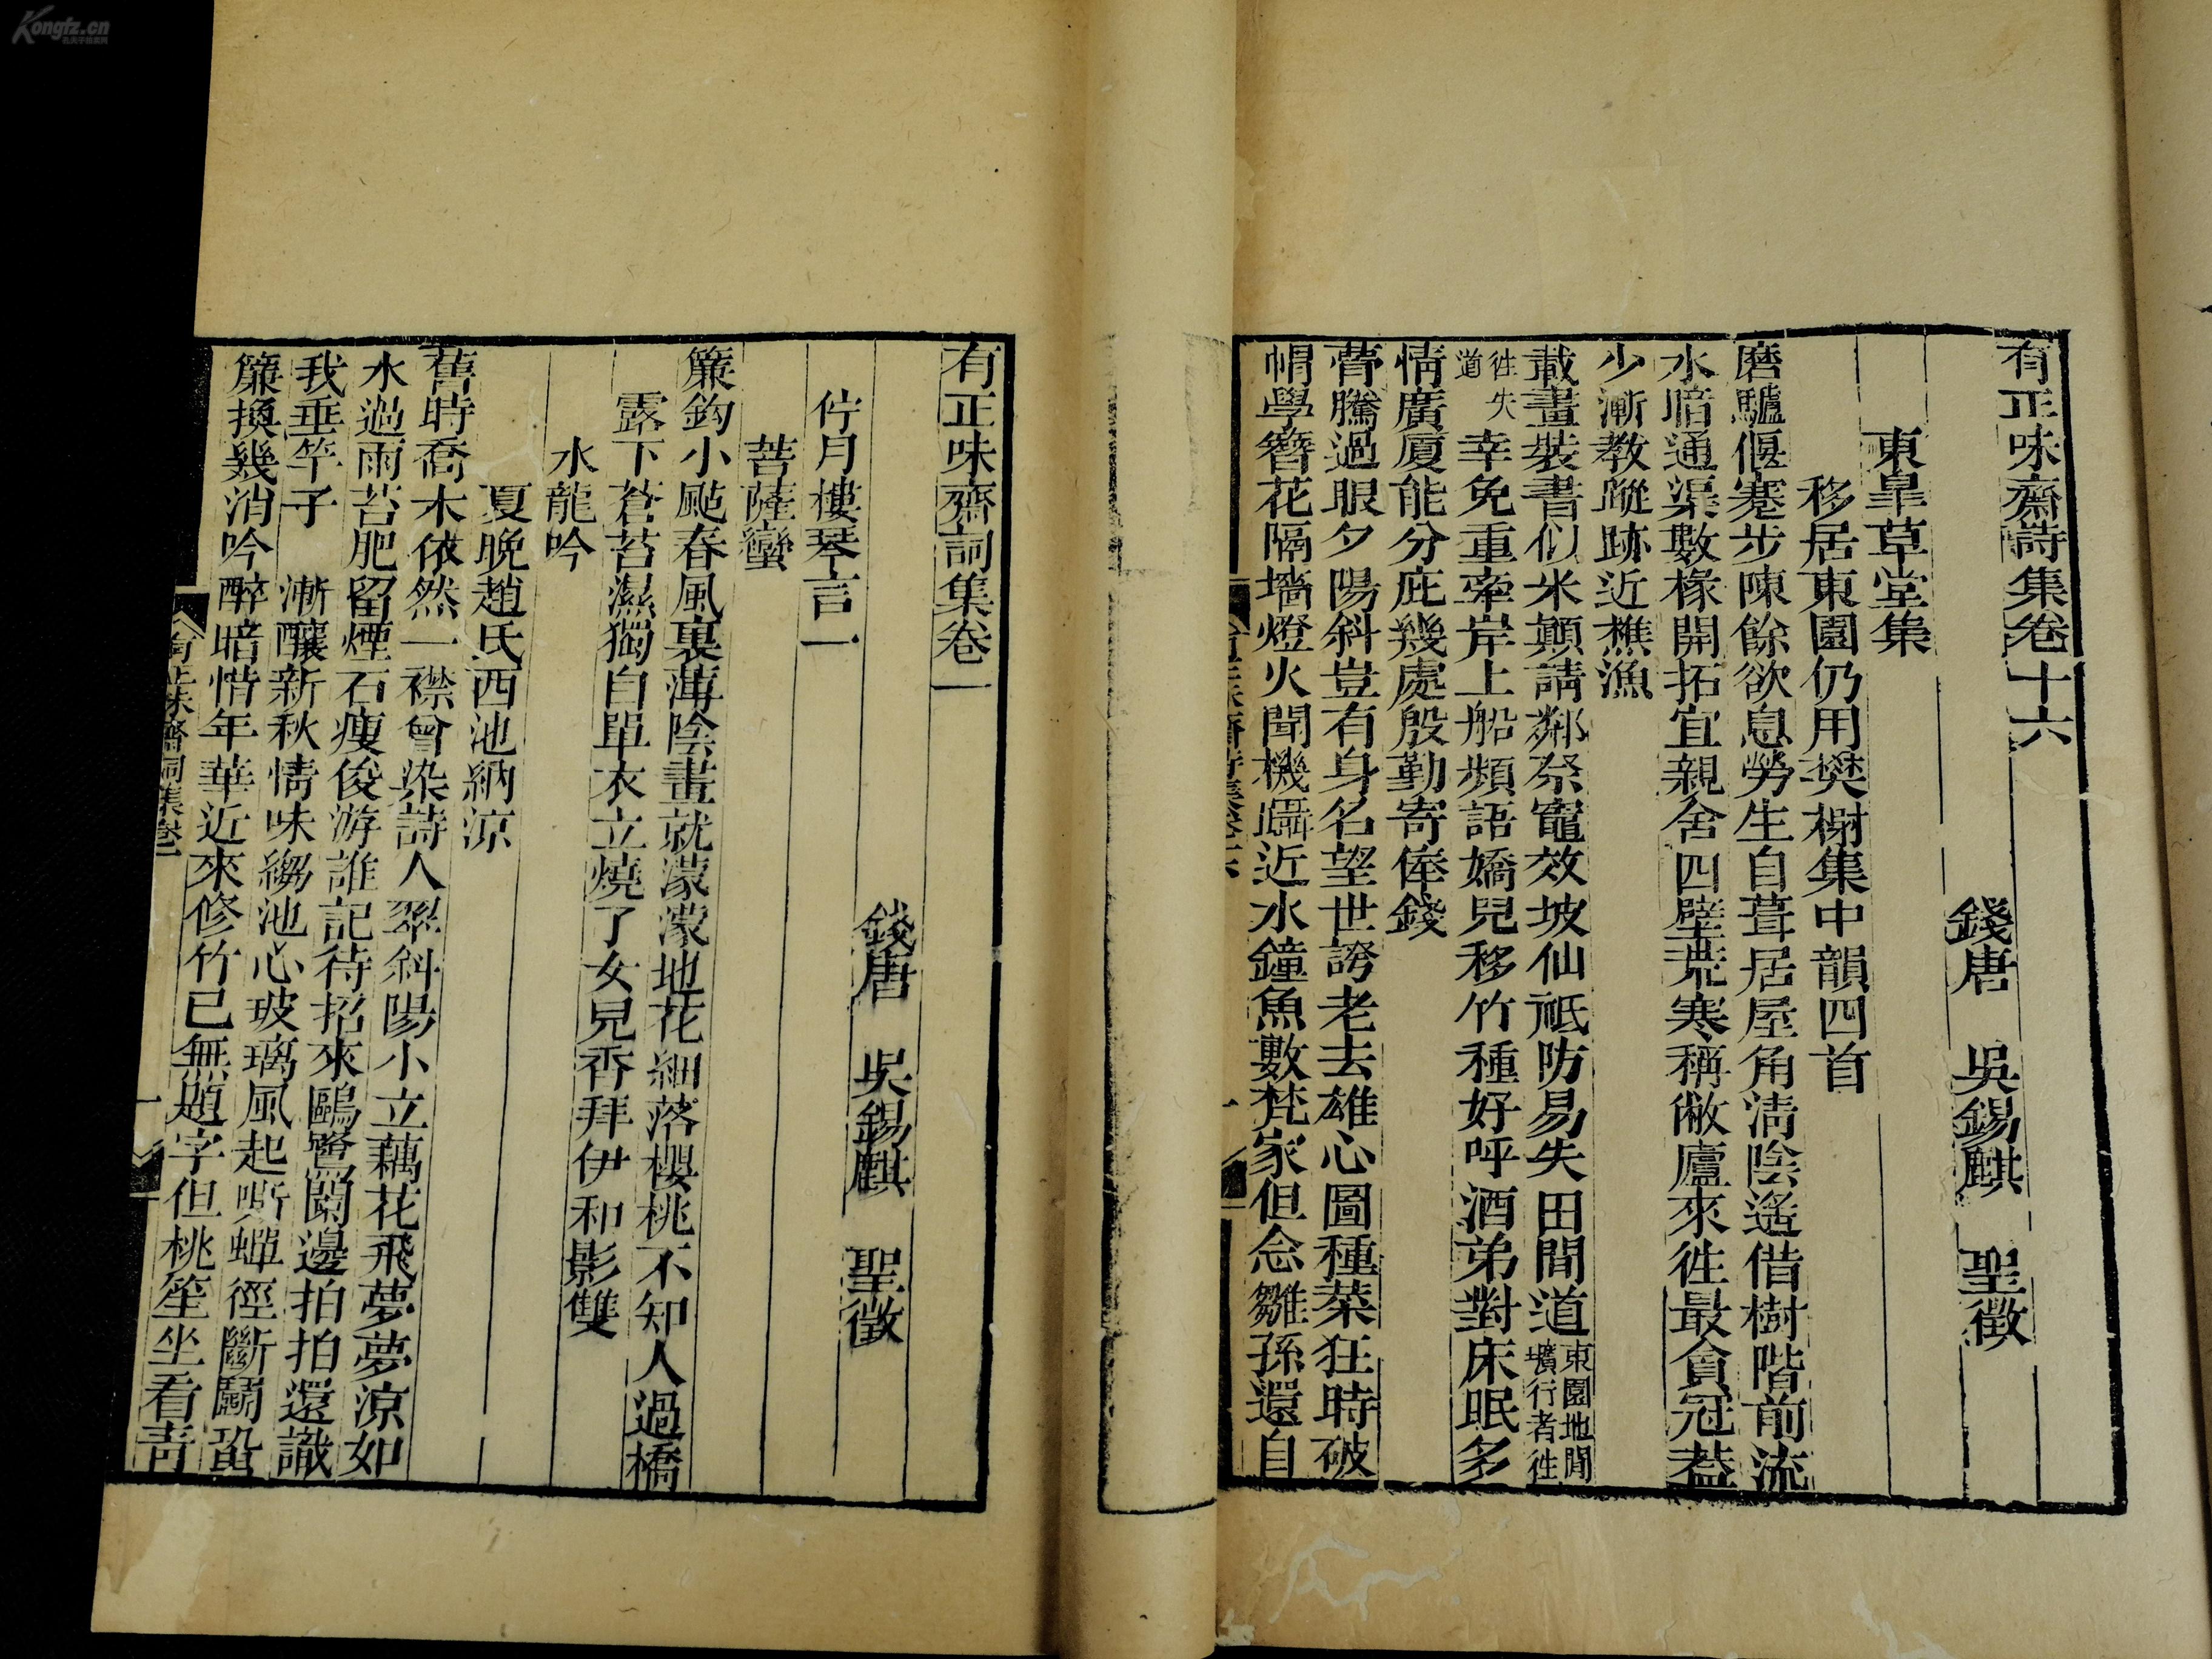 Kongfz.cn
有正味齋詩集卷十六
錢唐　吳錫麒　聖徵
東臯草堂集
移居東園仍用樊榭集中韻四首
磨驢偃蹇步陳餘欲息勞生自葺居屋角淸陰遙借樹階前流
水暗通渠數椽開拓宜親舍四壁荒寒稱敝廬來徃最貪冠葢
少漸教蹤跡近樵漁
載畫裝書似米顚請鄰祭竈效坡仙祗防易失田間道東園地閒壙行者徃
徃失道幸免重牽岸上船頻語嬌兒移竹種好呼酒弟對床眠多
情廣厦能分庇幾處殷勤寄俸錢
瞢騰過眼夕陽斜豈有身名望世誇老去雄心圖種菜狂時破
帽學簪花隔墻燈火聞機近水鐘魚數梵家但念雛孫還自
有正味齋詞集卷一
錢唐　吳錫麒　聖徵
佇月樓琴言一
菩薩蠻
簾鈎小颭春風裏薄陰畫就濛濛地花細落櫻桃不知人過橋
露下蒼苔濕獨自單衣立燒了女兒香拜伊和影雙
水龍吟
夏晚趙氏西池納凉
舊時喬木依然一襟曾染詩人翠斜陽小立藕花飛夢夢凉如
水過雨苔肥留煙石瘦俊游誰記待招來鷗鷺闌邊拍拍還識
我垂竿子　漸釀新秋情味縐池心玻璃風起嘶蟬徑斷鬭蛩
簾換幾消吟醉暗惜年華近來修竹已無題字但桃笙坐看靑
有正味齋詞集卷一
一